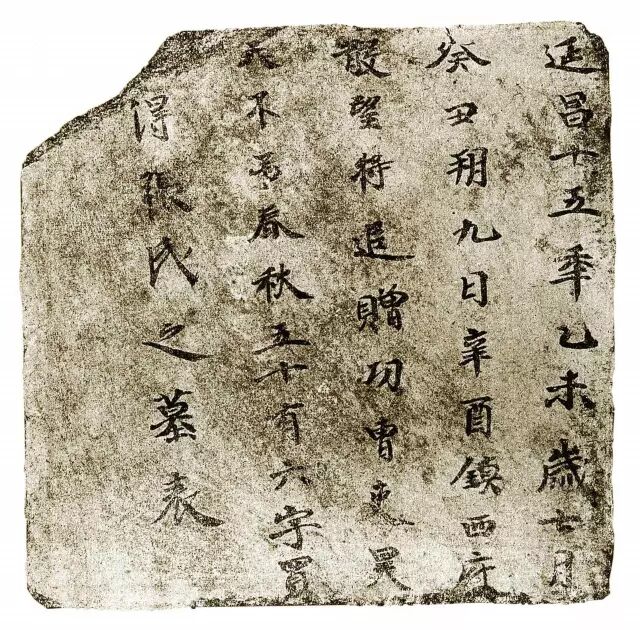 延昌十五年乙未歲七月
癸丑朔九日辛酉鎮西府
散望特追贈功曹吏昊
天不弔春秋五十有六字買
得張氏之墓表